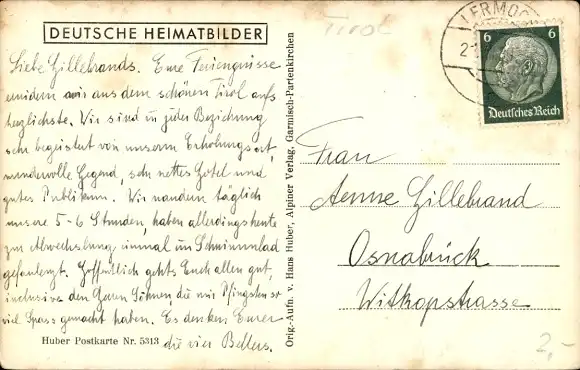 DEUTSCHE HEIMATBILDER
Tirol
LERMOOS
6 6
Deutsches Reich
Liebe Hillebrands. Eure Feriengrüsse
erwidern wir aus dem schönen Tirol aufs
herzlichste. Wir sind in jeder Beziehung
sehr begeistert von unserem Erholungsort,
wundervolle Gegend, sehr nettes Hotel und
gutes Publikum. Wir wandern täglich
unsere 5-6 Stunden, haben allerdings heute
zur Abwechslung einmal im Schwimmbad
gefaulenzt. Hoffentlich gehts Euch allen gut,
inclusive den Söhnen, die mir Pfingsten so
viel Spass gemacht haben. Es denken Eurer
die vier Bellers.
Huber Postkarte Nr. 5313
Orig.-Aufn. v. Hans Huber, Alpiner Verlag, Garmisch-Partenkirchen
Frau
Aenne Hillebrand
Osnabrück
Witkopstrasse
2,-